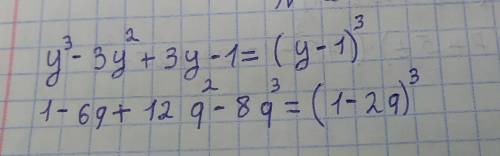 y³ - 3y² + 3y - 1 = (y - 1)³
1 - 6q + 12 q² - 8q³ = (1 - 2q)³